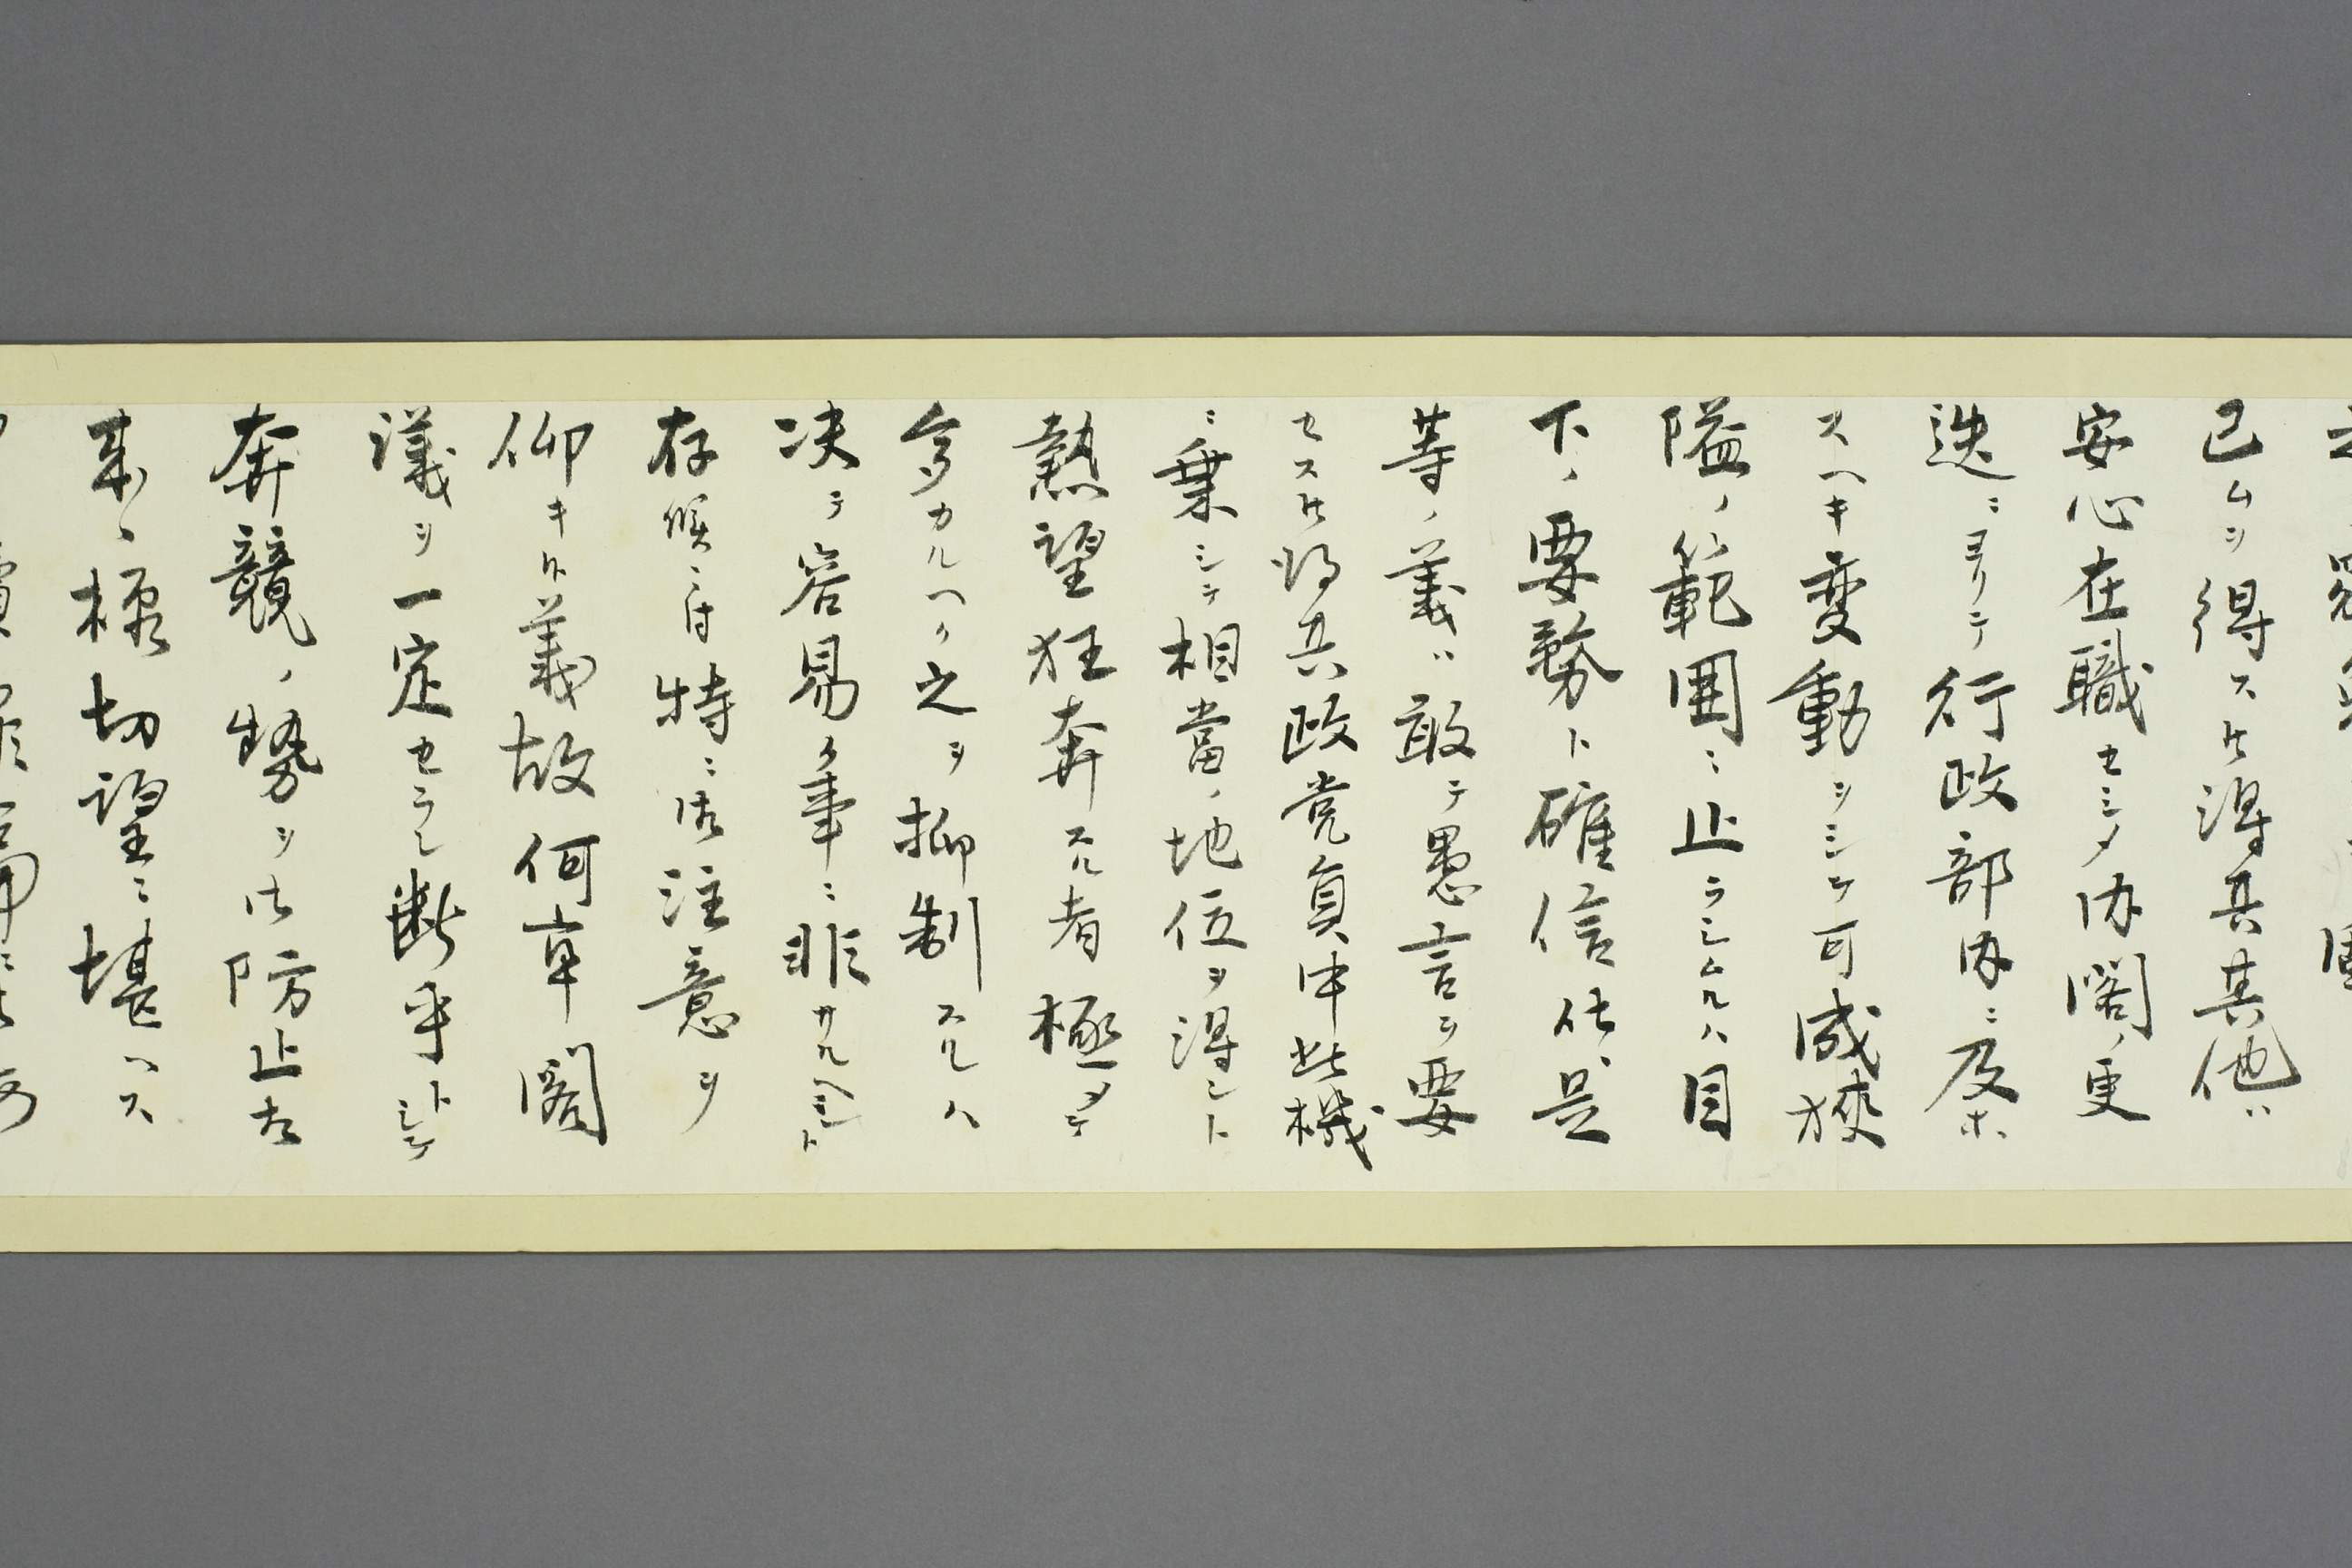 已ムヲ得ス候得共其他ハ
安心在職セシメ内閣ノ更
迭ニヨリテ行政部内ニ及ホ
スヘキ変動ヲシテ可成狭
隘ノ範囲ニ止ラシムルハ目
下ノ要務ト確信仕候是
等ノ義ハ敢テ愚言ヲ要
セス候得共政党員中此機
ニ乗シテ相當ノ地位ヲ得ント
熱望狂奔スル者極メテ
多カルヘク之ヲ抑制スルハ
决テ容易ノ事ニ非サルヘシト
存候ニ付特ニ御注意ヲ
仰キ候義故何卒閣
議ヲ一定セラレ断乎トシテ
奔競ノ勢ヲ御防止相
成候様切望ニ堪ヘス